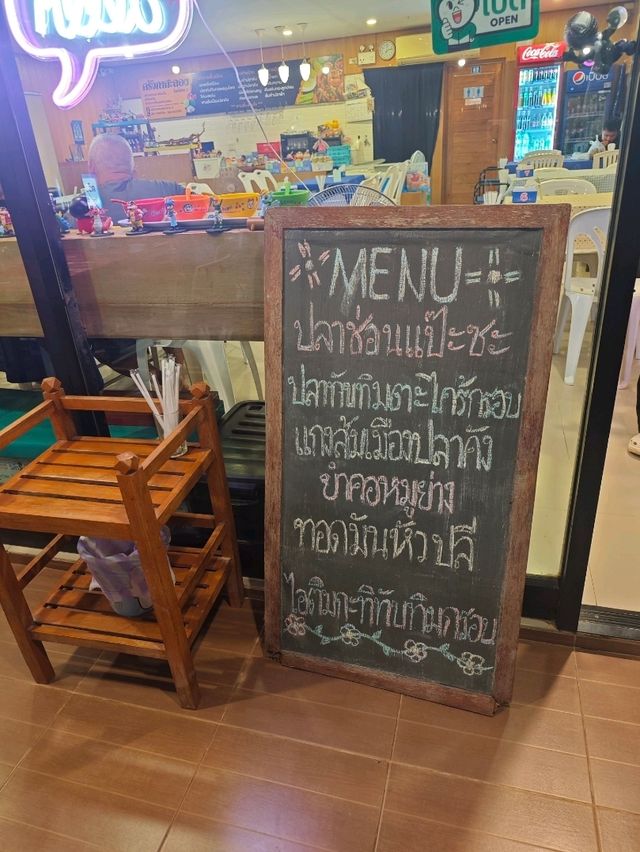 เปิด
OPEN
Coca-Cola
pepsi
MENU
ปลาช่อนแป๊ะซะ
ปลาทับทิมตะไคร้กรอบ
แกงส้มเมืองปลาคัง
ยำคอหมูย่าง
ทอดมันหัวปลี
ไอติมกะทิทับทิมกรอบ